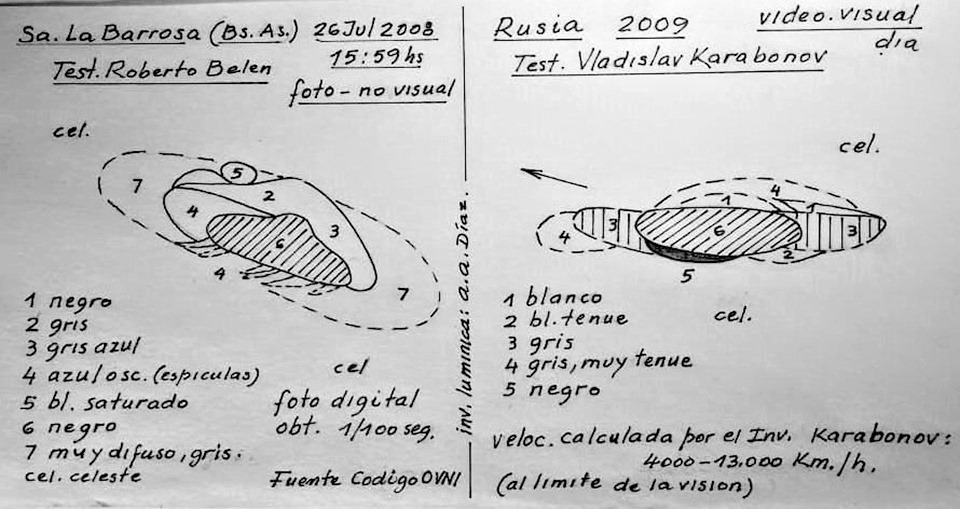 Sa. La Barrosa (Bs. As.) 26 Jul 2008
15:59 hs
Test. Roberto Belen
foto - no visual
cel.
7
5
2
4
3
6
4
7
1 negro
2 gris
3 gris azul
4 azul osc. (espiculas)
5 bl. saturado
6 negro
7 muy difuso, gris.
cel. celeste
cel
foto digital
obt. 1/100 seg.
Fuente Codigo OVNI
inv. luminica: a. a. Díaz.
Rusia 2009 video. visual
dia
Test. Vladislav Karabonov
cel.
4
1
1
4
3
6
3
2
5
1 blanco
2 bl. tenue
3 gris
4 gris, muy tenue
5 negro
cel.
veloc. calculada por el Inv. Karabonov:
4000-13.000 Km./h.
(al limite de la vision)